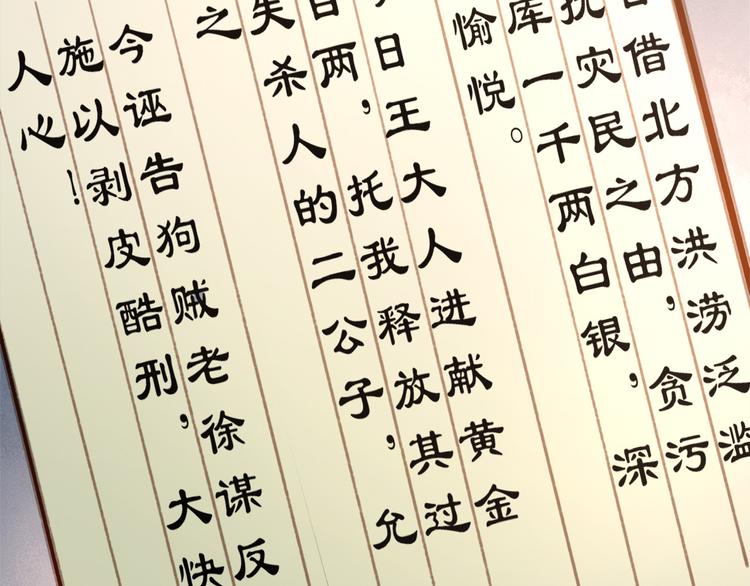 借北方洪涝泛滥
抚灾民之由，贪污
库一千两白银，深
愉悦。
日王大人进献黄金
百两，托我释放其过
失杀人的二公子，允
之
今诬告狗贼老徐谋反
施以剥皮酷刑，大快
人心！